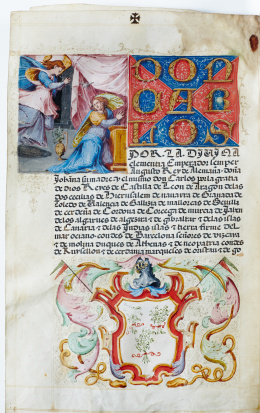 DON
CARLOS
POR LA DIUINA
clemençia Emperador semper
Augusto Rey de Alemaña doña
Johana su madre y el mismo don Carlos por la graçia
de dios Reyes de Castilla de Leon de Aragon delas
dos çeçilias de Hierusalem de nauarra de Granada de
Toledo de Valençia de Galizia de mallorcas de Seuilla
de çerdeña de Cordoua de Corçega de murçia de Jahen
delos algarues de algezira de gibraltar y delas islas
de Canaria y delas Indias islas y tierra firme del
mar oçeano condes de Barçelona señores de vizcaya
y de molina duques de Athenas y de neopatria condes
de Ruysellon y de çerdania marqueses de oristan y de go